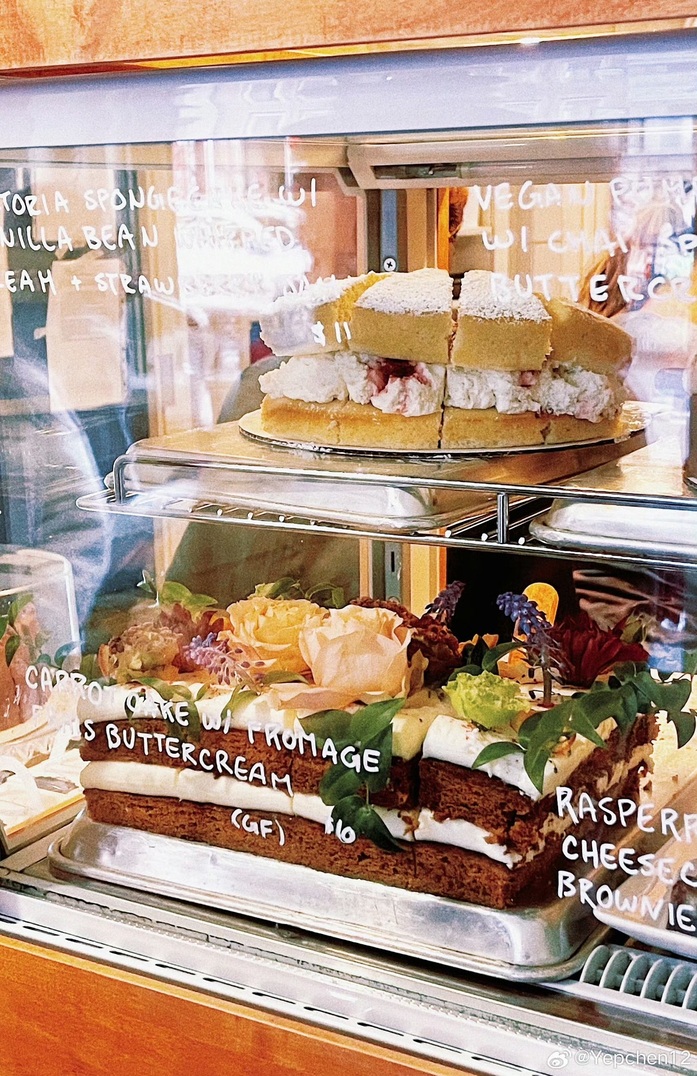 TORIA SPONGE CAKE W/
NILLA BEAN WHIPPED
EAM + STRAW
$11
VEGAN
W/ CHAI SP
BUTTERCR
CARROT CAKE W/ FROMAGE
BUTTERCREAM
(GF) $6
RASPER
CHEESEC
BROWNIE
@Yepchen12